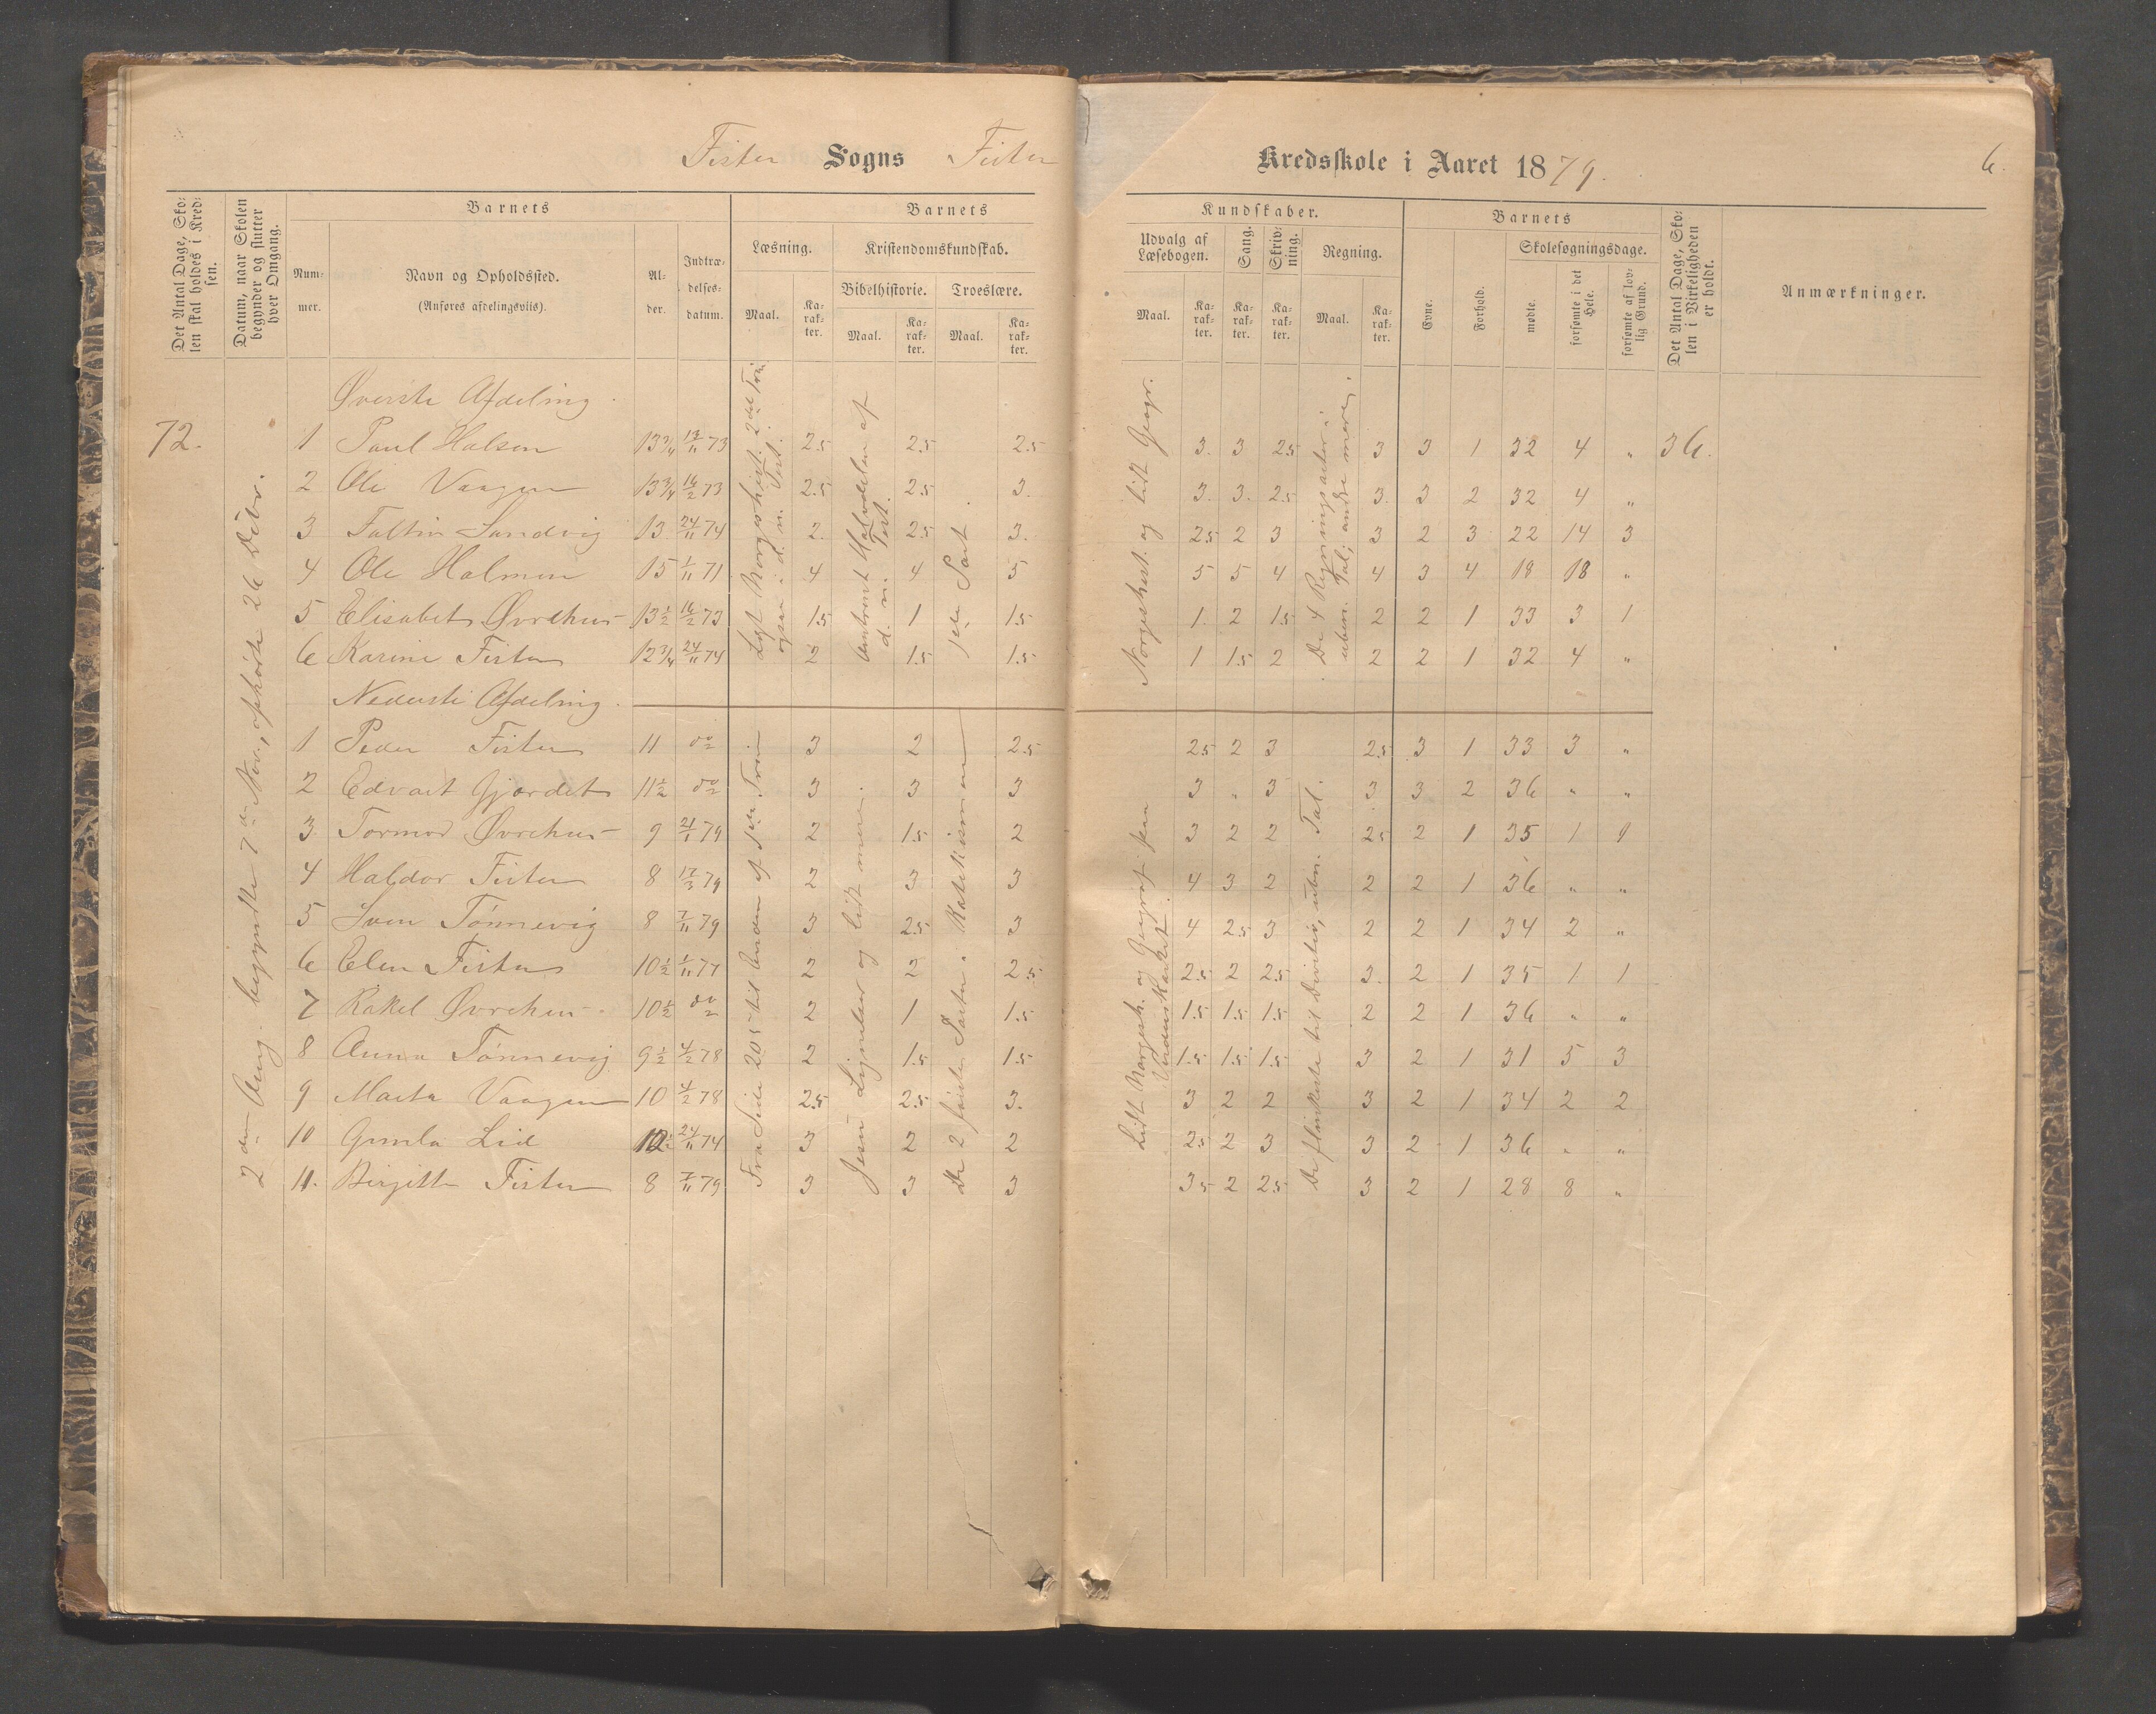 Fister Sogns Fister Kredsskole i Aaret 1879. 6.
Det Antal Dage, Skolen skal holdes i Kredsen.
Datum, naar Skolen begynder og slutter hver Omgang.
Barnets
Nummer.
Navn og Opholdssted.
(Anføres afdelingsviis).
Alder.
Indtrædelsesdatum.
Barnets Kundskaber.
Læsning.
Maal.
Karakter.
Kristendomskundskab.
Bibelhistorie.
Maal.
Karakter.
Troeslære.
Maal.
Karakter.
Udvalg af Læsebogen.
Maal.
Karakter.
Sang.
Karakter.
Skrivning.
Karakter.
Regning.
Maal.
Karakter.
Barnets
Evne.
Forhold.
Skolesøgningsdage.
mødte.
forsømte i det Hele.
forsømte af lovlig Grund.
Det Antal Dage, Skolen i Virkeligheden er holdt.
Anmærkninger.
2den Omg. begyndte 7de Nov., ophørte 26 Debr.
Øverste Afdeling.
72. 1 Paul Halsen 13 3/4 13/11 73 2.5 2.5 2.5 3. 3 2.5 3 3 1 32 4 " 36.
2 Ole Vaagen 13 3/4 16/2 73 2.5 2.5 3. 3. 3. 2.5 3. 3 2 32 4 "
3 Taltin Sandvig 13 24/11 74 2. 2.5 3. 2.5 2 3 3 2 3 22 14 3
4 Ole Holmen 15 1/11 71 4 4 5 5 5 4 4 3 4 18 18 "
5 Elisabet Øvrehus 13 1/2 16/2 73 1.5 1 1.5 1. 2 1.5 2 2 1 33 3 1
6 Karine Fister 12 3/4 24/11 74 2 1.5 1.5 1 1.5 2 2 2 1 32 4 "
Læst Norgeshist. 2det Trin
ogsaa i d. n. Test.
Omtrent Halvdelen af
d. n. Test.
1ste Part.
Norgeshist. og lidt Geogr.
De 4 Regningsarter i
uben. Tal, andre mere.
Nederste Afdeling.
1 Peder Fister 11 do 3 2 2.5 2.5 2 3 2.5 3 1 33 3 "
2 Edvart Gjerdet 11 1/2 do 3 3 3 3 " 3 3 3 2 36 " "
3 Tormod Øvrehus 9 21/1 79 2 1.5 2 3 2 2 2.5 2 1 35 1 1
4 Haldor Fister 8 17/3 79 2 3 3 4 3 2 2 2 1 36 " "
5 Sven Tønnevig 8 7/11 79 3 2.5 3 4 2.5 3 2 2 1 34 2 "
6 Elen Fister 10 1/2 1/11 77 2 2 2.5 2.5 2 2.5 3. 2 1 35 1 1
7 Rakel Øvrehus 10 1/2 do 2 1 1.5 1.5 1.5 1.5 2 2 1 36 " "
8 Anna Tønnevig 9 1/2 4/2 78 2 1.5 1.5 1.5 1.5 1.5 3 2 1 31 5 3
9 Marta Vaagen 10 4/2 78 2.5 2.5 3. 3 2 2 3 2 1 34 2 2
10 Gunla Lid 12 1/2 24/11 74 3 2 2 2.5 2 3 3 2 1 36 " "
11. Birgitte Fister 8 7/11 79 3 3 3 3.5 2 2.5 3 2 1 28 8 "
Fra Side 205 til Enden af 1ste Trin
Jesu Lignelser og lidt mere.
De 2 første Parter i Katekismen
Lidt Norgesh. og Geografi paa
Verdenskartet.
De flinkeste til Divisio, uben. Tal.